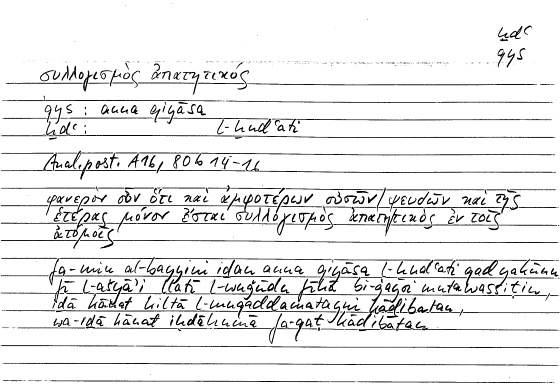 ḫdʿ
qys
συλλογισμὸς ἀπατητικός
qys : anna qiyāsa
ḫdʿ : l-ḫudʿati
Anal. post. A16, 80b 14-16
φανερὸν οὖν ὅτι καὶ ἀμφοτέρων οὐσῶν/ψευδῶν καὶ τῆς
ἑτέρας μόνον ἔσται συλλογισμὸς ἀπατητικὸς ἐν τοῖς
ἀτόμοις
fa-min al-bayyini iḏan anna qiyāsa l-ḫudʿati qad yakūnu
fī l-ašyāʾi llatī l-wuǧūdu fīhā bi-ġayri mutawassiṭin,
iḏā kānat kiltā l-muqaddamatayni kāḏibatan,
wa-iḏā kānat iḥdāhumā fa-qaṭ kāḏibatan